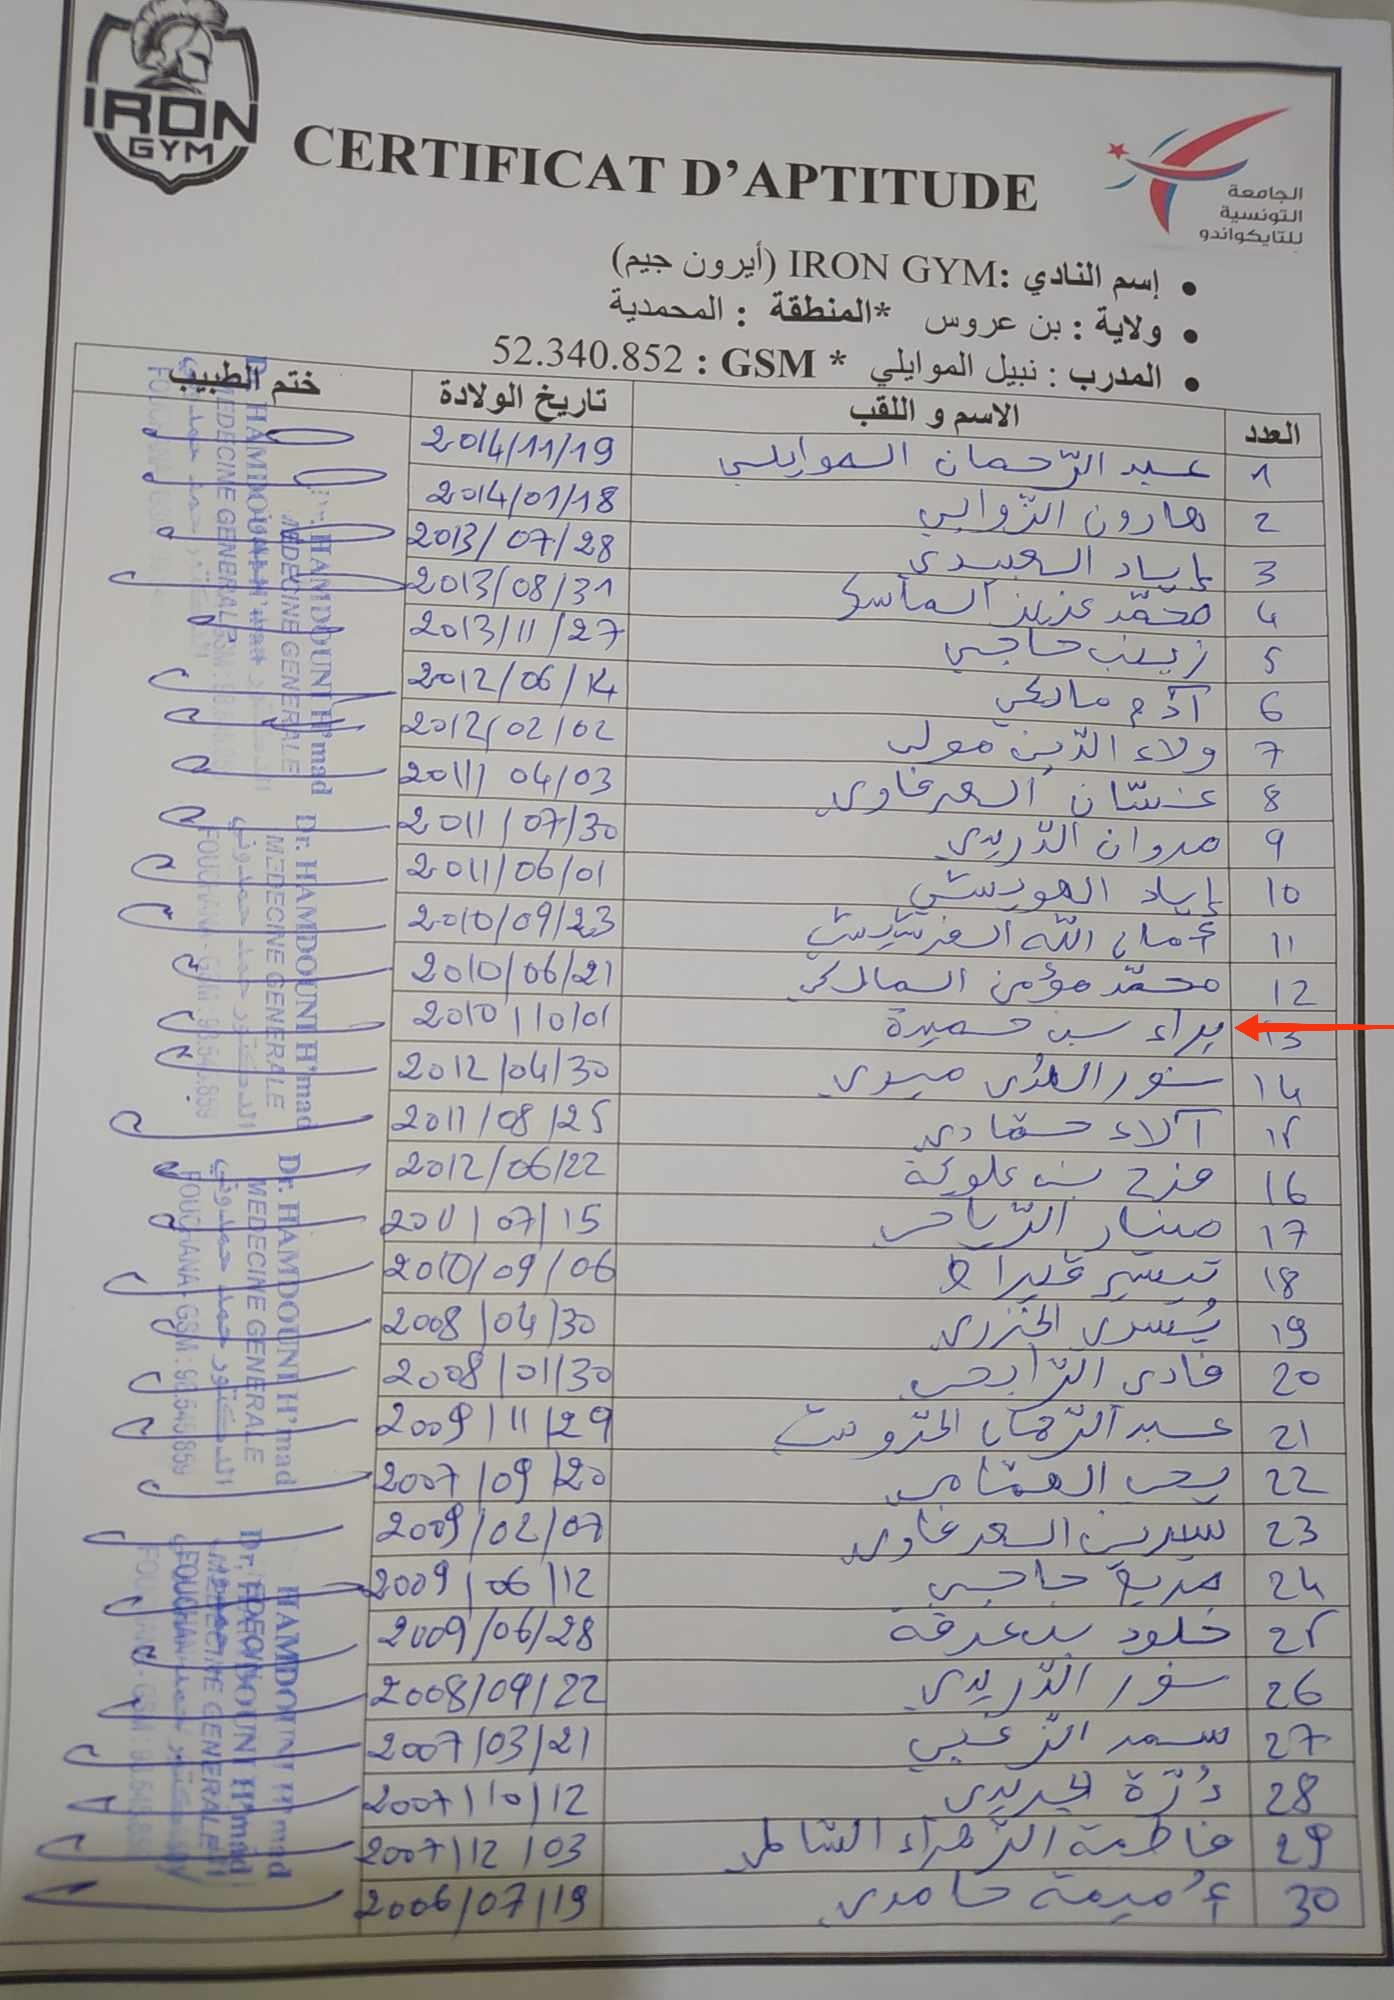 IRON
GYM
CERTIFICAT D'APTITUDE
الجامعة
التونسية
للتايكواندو
• إسم النادي :IRON GYM (أيرون جيم)
• ولاية : بن عروس *المنطقة : المحمدية
• المدرب : نبيل الموايلي * GSM : 52.340.852
العدد الاسم و اللقب تاريخ الولادة ختم الطبيب
1 عبد الرّحمان الموايلي 2014/11/19
2 هارون الزوابي 2014/01/18
3 إياد العبيدي 2013/07/28
4 محمّد عزيز الماسكي 2013/08/31
5 زينب حاجي 2013/11/27
6 آدم مالكي 2012/06/14
7 ولاء الدّين مولى 2012/02/02
8 غسّان السعرغاوي 2011/04/03
9 مروان الدّريدي 2011/07/30
10 إياد الهويشي 2011/06/01
11 أمان الله الفرشيشي 2010/09/23
12 محمّد مؤمن المالكي 2010/06/21
13 براء بن حميدة 2010/10/01
14 نور الهدى ميري 2012/04/30
15 آلاء حمّادي 2011/08/25
16 فرح بن علوية 2012/06/22
17 منار الرّياحي 2011/07/15
18 تيسير قيراط 2010/09/06
19 يُسرى الخزري 2008/04/30
20 فادي الرّابحي 2008/01/30
21 عبد الرّحمان الحرّوشي 2009/11/29
22 يحي العثمامي 2007/09/20
23 سيرين السعرغاوي 2009/02/07
24 مريم حاجي 2009/06/12
25 خلود بن عرفة 2009/06/28
26 نور الدّريدي 2008/09/22
27 سمر الزّغبي 2007/03/21
28 دُرّة الجريدي 2007/10/12
29 فاطمة الزّهراء الشاملي 2007/12/03
30 أُميمة حامدي 2006/07/19
Dr. HAMDOUNI H'mad
MEDECINE GENERALE
الدكتور حمد حمدوني
FOUCHANA - GSM : 98.545.859